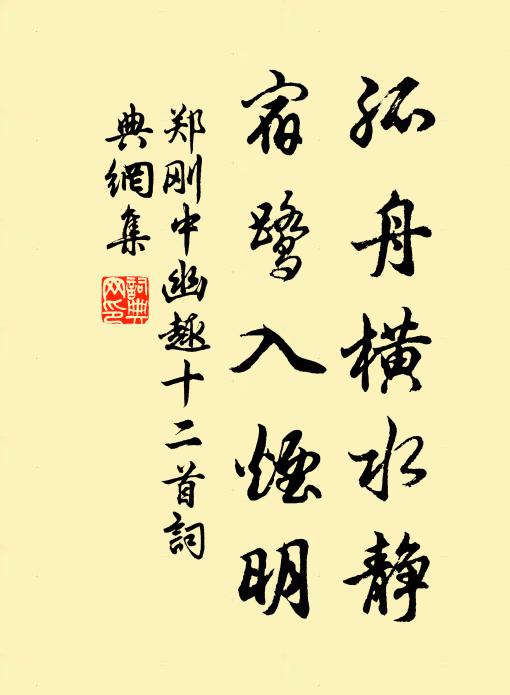 孤舟横水静
宿鹭入煙明
郑刚中幽趣十二首詞
典網集
詞典
网印